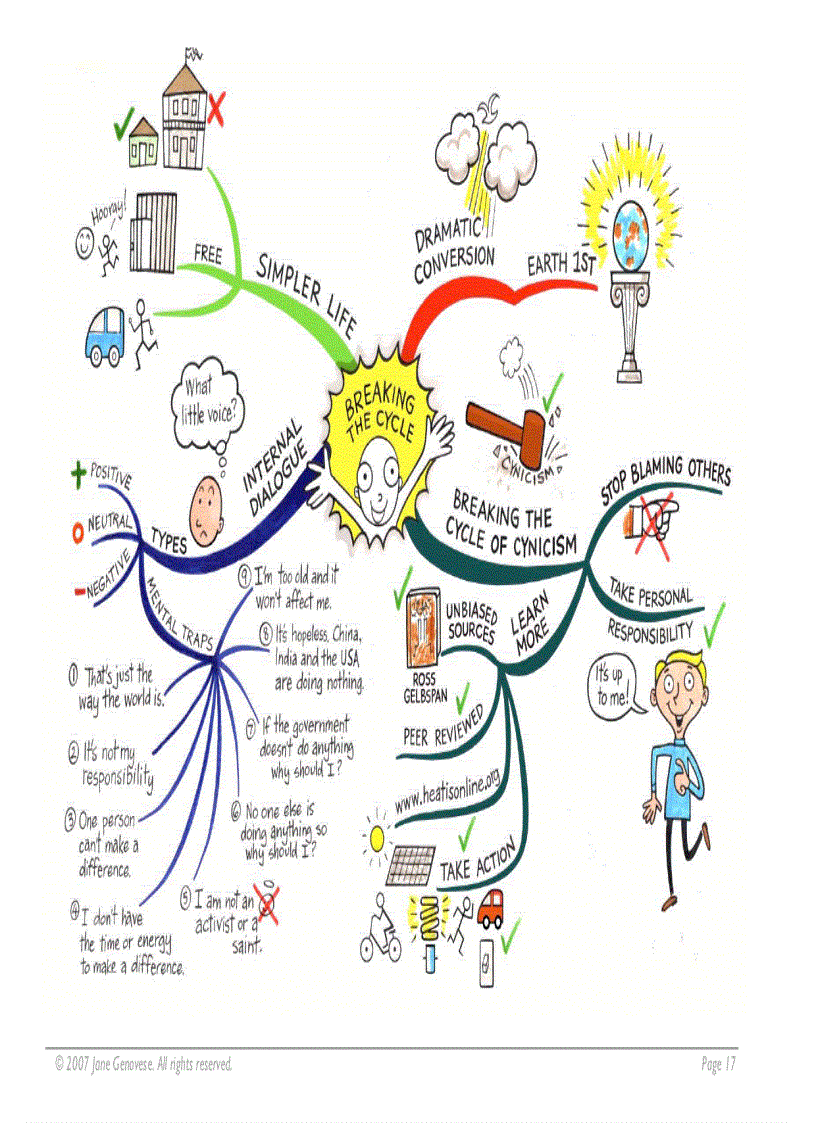 BREAKING
THE CYCLE
DRAMATIC
CONVERSION
EARTH 1ST
BREAKING THE
CYCLE OF CYNICISM
CYNICISM
STOP BLAMING OTHERS
TAKE PERSONAL
RESPONSIBILITY
It's up
to me!
LEARN
MORE
UNBIASED
SOURCES
ROSS
GELBSPAN
PEER REVIEWED
www.heatisonline.org
TAKE ACTION
INTERNAL
DIALOGUE
What
little voice?
TYPES
+ POSITIVE
NEUTRAL
- NEGATIVE
MENTAL TRAPS
① That's just the
way the world is.
② It's not my
responsibility
③ One person
can't make a
difference.
④ I don't have
the time or energy
to make a difference.
⑤ I am not an
activist or a
saint.
⑥ No one else is
doing anything so
why should I?
⑦ If the government
doesn't do anything
why should I?
⑧ It's hopeless, China,
India and the USA
are doing nothing.
⑨ I'm too old and it
won't affect me.
SIMPLER LIFE
FREE
Hooray!
© 2007 Jane Genovese. All rights reserved.
Page 17